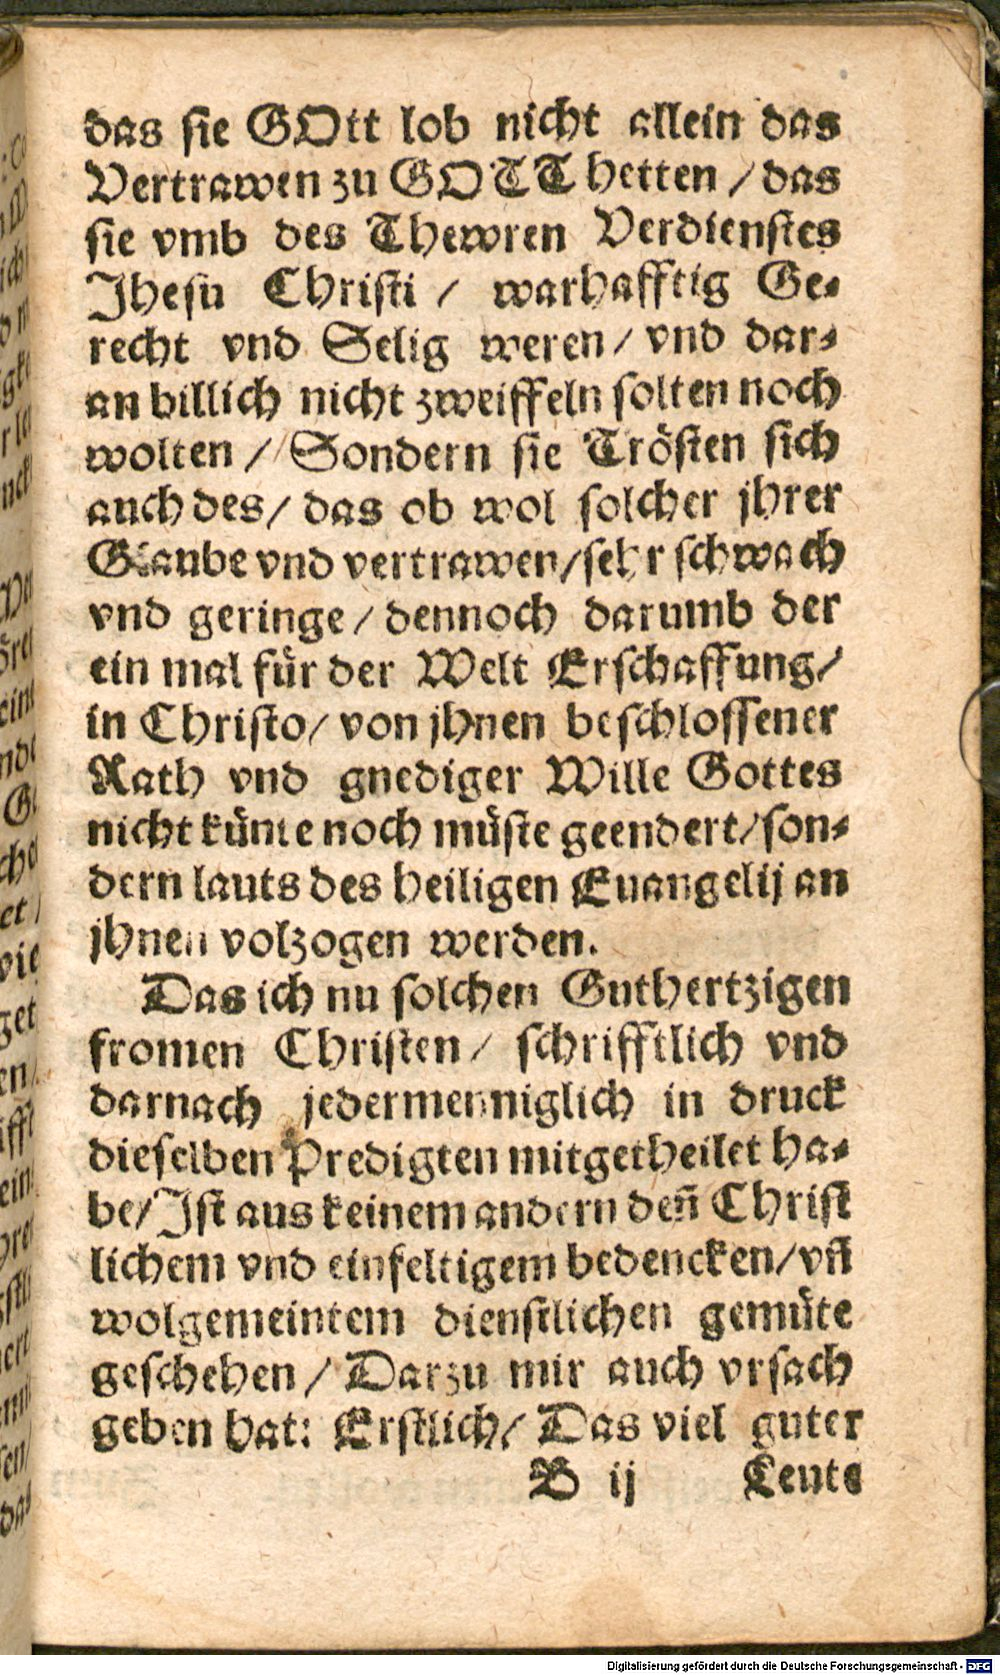 das sie GOtt lob nicht allein das
Vertrawen zu GOTT hetten / das
sie vmb des Thewren Verdienstes
Jhesu Christi / warhafftig Ge-
recht vnd Selig weren / vnd dar-
an billich nicht zweiffeln solten noch
wolten / Sondern sie Trösten sich
auch des / das ob wol solcher jhrer
Glaube vnd vertrawen / sehr schwach
vnd geringe / dennoch darumb der
ein mal für der Welt Erschaffung /
in Christo / von jhnen beschlossener
Rath vnd gnediger Wille Gottes
nicht künte noch müste geendert / son-
dern lauts des heiligen Euangelij an
jhnen volzogen werden.
Das ich nu solchen Guthertzigen
fromen Christen / schrifftlich vnd
darnach jedermenniglich in druck
dieselben Predigten mitgetheilet ha-
be / Jst aus keinem andern den̄ Christ
lichem vnd einfeltigem bedencken / vn̄
wolgemeintem dienstlichen gemüte
geschehen / Darzu mir auch vrsach
geben hat: Erstlich / Das viel guter
B ij Leute
Digitalisierung gefördert durch die Deutsche Forschungsgemeinschaft - DFG